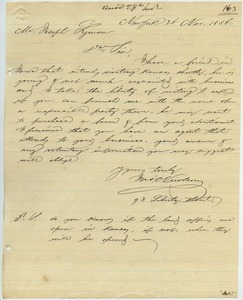 163
New York 26 Nov. 1856
Mr. Joseph Lyman
Dear Sir
I have a friend in
Iowa that intends visiting Kansas shortly, he is
young & not much acquainted with business
and I take the liberty of writing to ask
if you can furnish me with the name of
a responsible party there he may want to
purchase a land from your
I perceive that you have an agent that
attends to your business. your answer &
any voluntary information you may suggest
will oblige
Yours truly
93 Liberty Street
P.S. do you know if the land offices are
open in Kansas, if not when they
will be opened